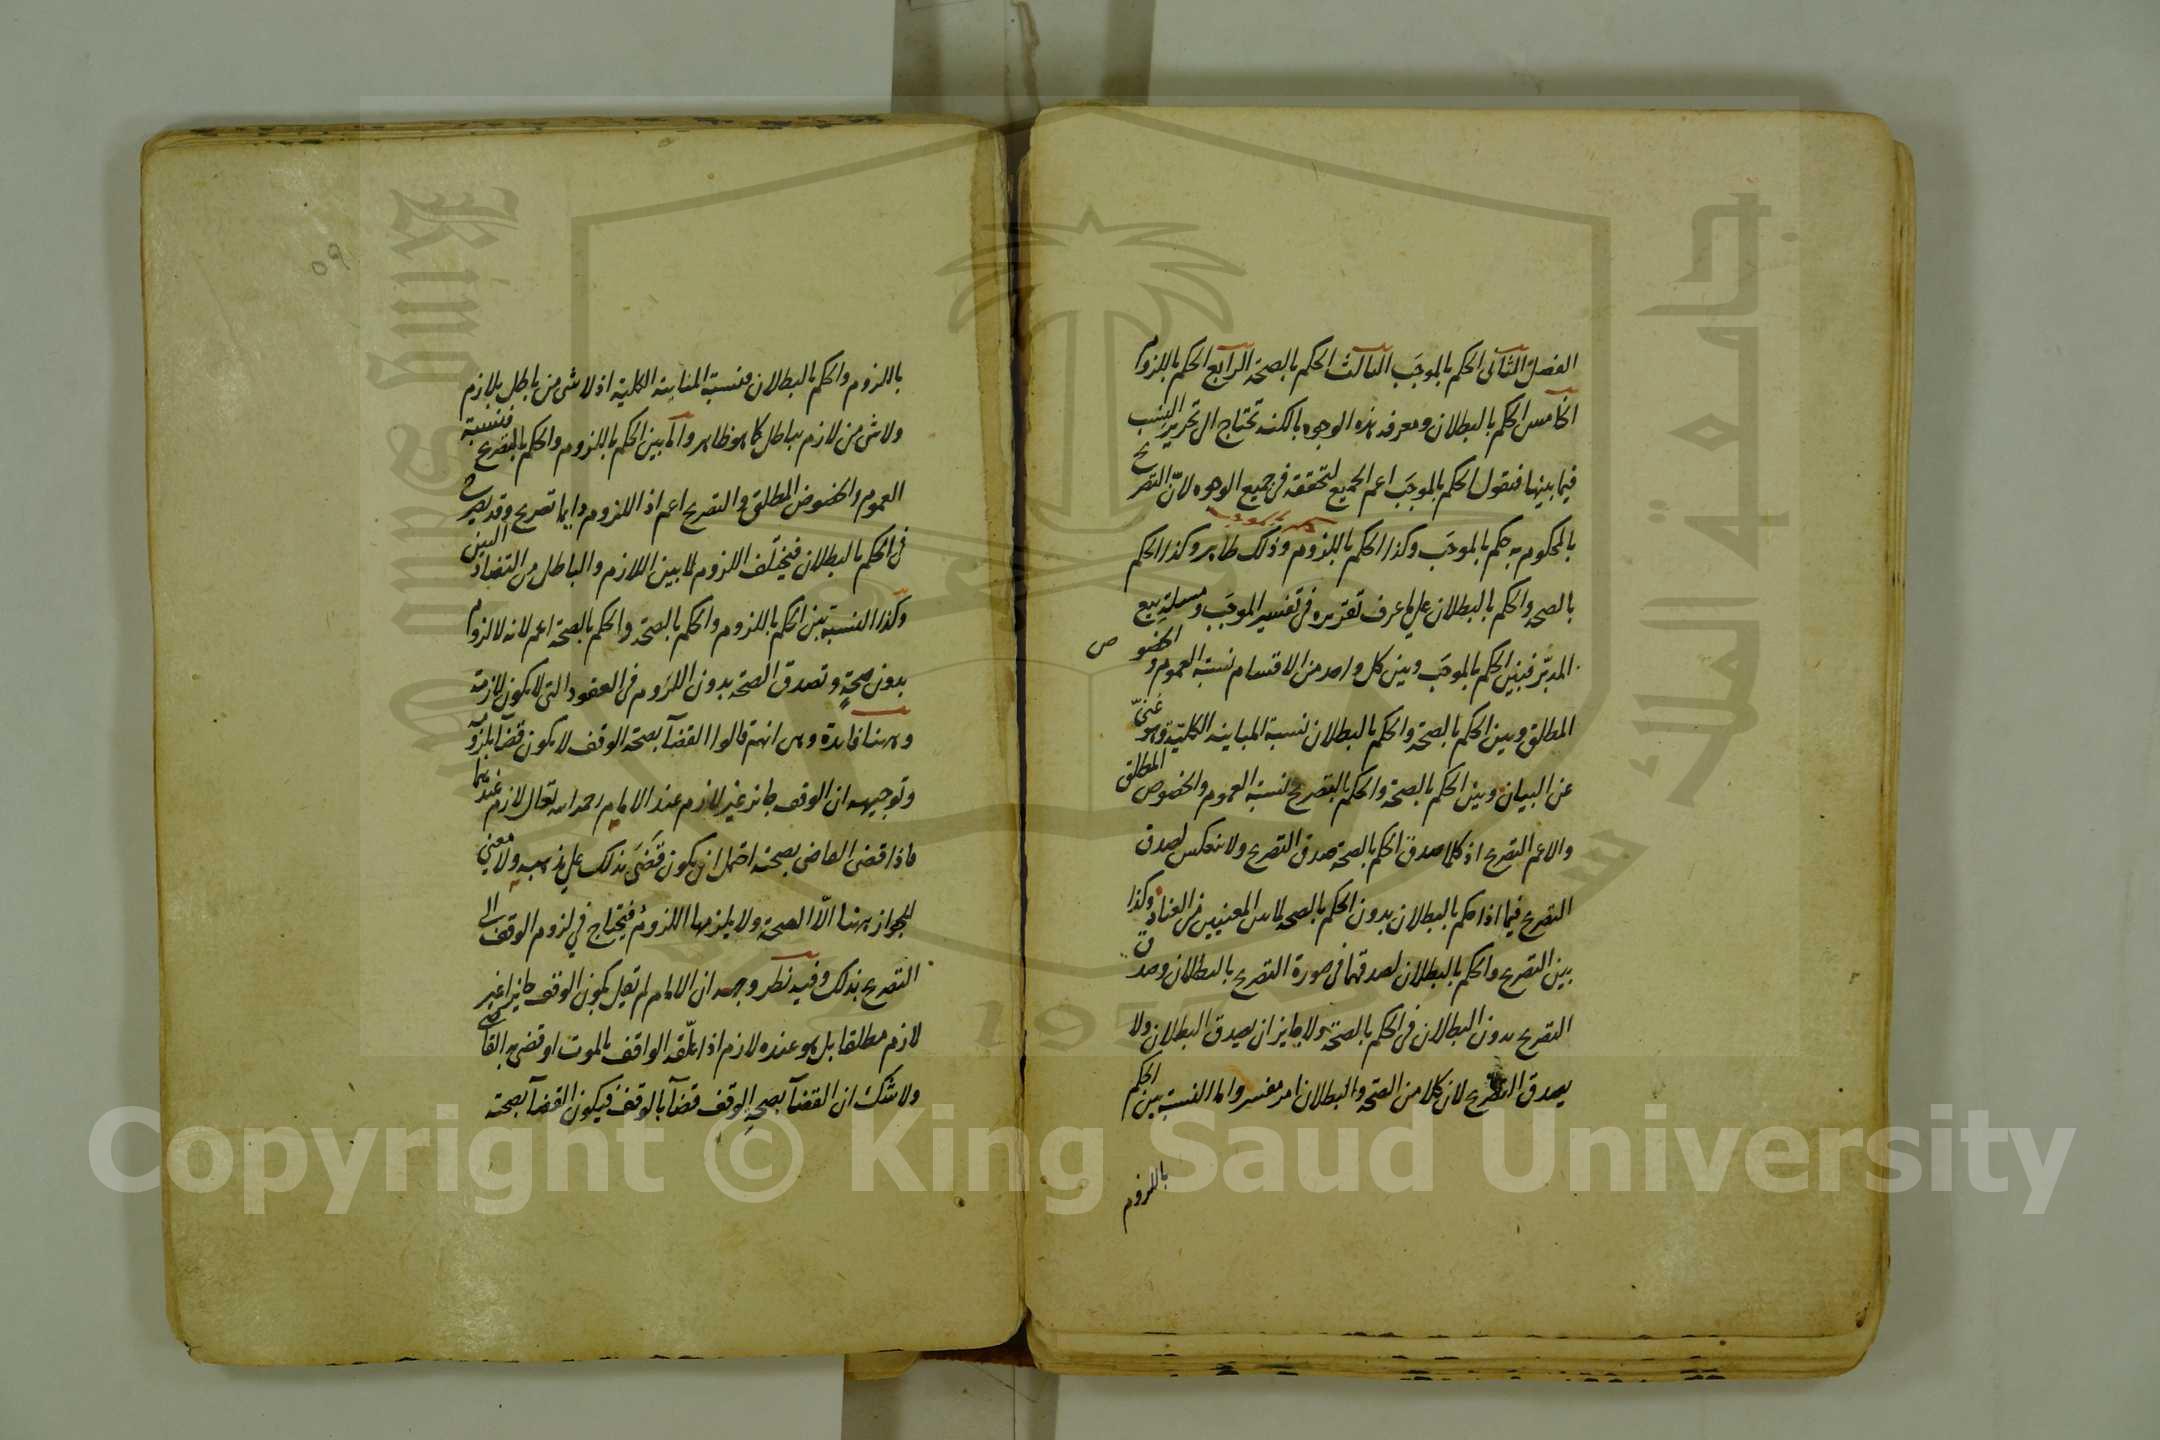 الفصل الثاني الحكم بالموجَب الثالث الحكم بالصحة الرابع الحكم باللزوم
الخامس الحكم بالبطلان ومعرفة هذه الوجوه بالكنه تحتاج الى تحرير النسب
فيما بينها فنقول الحكم بالموجَب اعم الجميع لتحققه في جميع الوجوه لانّ التصريح
بالمحكوم به حكم بالموجَب وكذا الحكم باللزوم وذلك ظاهر وكذا الحكم
بالصحة والحكم بالبطلان على ما عرف تقريره في تفسير الموجَب ومسئلة بيع
المدبّر فبين الحكم بالموجَب وبين كل واحد من الاقسام نسبة العموم والخصوص
المطلق وبين الحكم بالصحة والحكم بالبطلان نسبة المباينة الكلية وهو غنيّ
عن البيان وبين الحكم بالصحة والحكم بالتصريح نسبة العموم والخصوص المطلق
والاعم التصريح اذ كلما صدق الحكم بالصحة صدق التصريح ولا ينعكس لصدق
التصريح فيما اذا حكم بالبطلان بدون الحكم بالصحة لما بين المعنيين من العناد وكذا
بين التصريح والحكم بالبطلان لصدقهما في صورة التصريح بالبطلان وصدق
التصريح بدون البطلان في الحكم بالصحة ولا جايز ان يصدق البطلان ولا
يصدق التصريح لان كلا من الصحة والبطلان امر مفسر واما النسبة بين الحكم
باللزوم
باللزوم والحكم بالبطلان فنسبة المباينة الكلية اذ لا شي من باطل بلازم
ولا شي من لازم بباطل كما هو ظاهر واما بين الحكم باللزوم والحكم بالتصريح فنسبة
العموم والخصوص المطلق والتصريح اعم اذ اللزوم دايما تصريح وقد يصرح
في الحكم بالبطلان فيتخلّف اللزوم لما بين اللازم والباطل من التضاد البين
وكذا النسبة بين الحكم باللزوم والحكم بالصحة والحكم بالصحة اعم لانه لا لزوم
بدون صحةٍ وتصدق الصحة بدون اللزوم في العقود التي لا يكون لازمة
وههنا فايدة وهي انهم قالوا القضآ بصحة الوقف لا يكون قضآ بلزومه
وتوجيهه ان الوقف جايز غير لازم عند الامام رحمه الله تعالى لازم عندهما
فاذا قضى القاضي بصحته احتمل ان يكون قَضَى بذلك على مذهبه ولا معنى
للجواز ههنا الّا الصحة ولا يلزمها اللزوم فيحتاج في لزوم الوقف الى
التصريح بذلك وفيه نظر وجهه ان الامام لم يقل بكون الوقف جايزا غير
لازم مطلقا بل هو عنده لازم اذا علّقه الواقف بالموت او قضى به القاضي
ولا شك ان القضآ بصحة الوقف قضآ بالوقف فيكون القضآ بصحته
Copyright © King Saud University